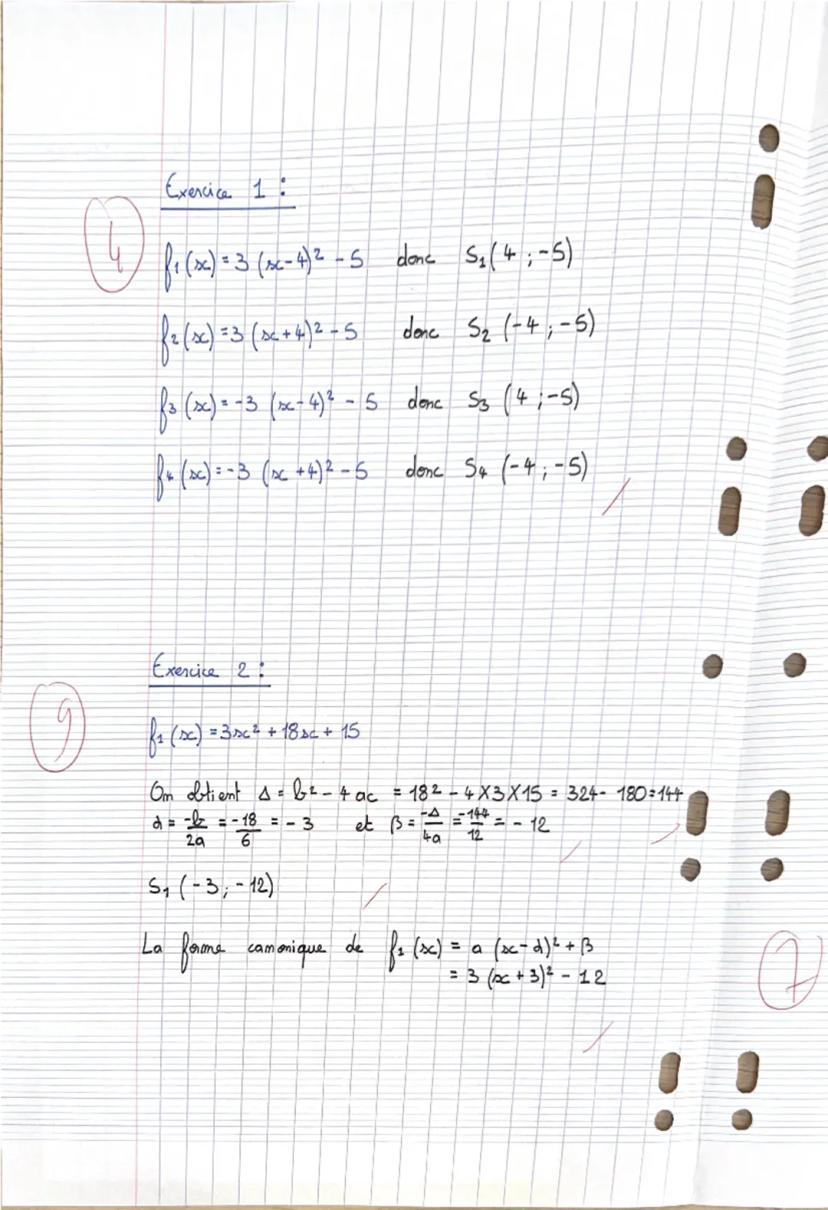 Exercice 1 :
4
f₁(x) = 3 (x-4)² - 5 donc S₁(4 ; -5)
f₂(x) = 3 (x+4)² - 5 donc S₂ (-4 ; -5)
f₃(x) = -3 (x-4)² - 5 donc S₃ (4 ; -5)
f₄(x) = -3 (x+4)² - 5 donc S₄ (-4 ; -5)
Exercice 2 :
9
f₁(x) = 3x² + 18x + 15
On obtient Δ = b² - 4ac = 18² - 4×3×15 = 324 - 180 = 144
α = -b/2a = -18/6 = -3 et β = -Δ/4a = -144/12 = -12
S₁ (-3 ; -12)
La forme canonique de f₁(x) = a (x-α)² + β
= 3 (x+3)² - 12
7